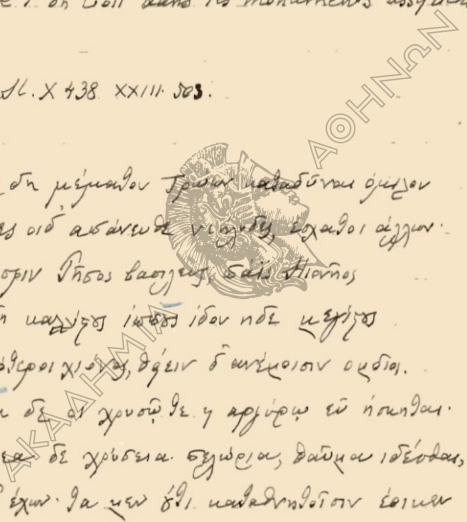 Il. X 438 XXIII. 503.
δη μέματον Τρώων καταδῦναι ὅμιλον
οιδ' απάνευθε νεηλυδες έσχατοι άλλων.
σφιν Ρῆσος βασιλευς, παϊς Ηιονῆος
καλλίστους ίππους ίδον ηδε μεγίστους
ότεροι χιονος, θείειν δ' ανέμοισιν ομοῖοι.
δε οι χρυσῷ τε η αργύρῳ εῦ ήσκηται.
δε χρύσεια πελώρια, θαῦμα ιδέσθαι,
έχων. τα μεν ού τι καταθνητοῖσιν έοικεν
ΑΚΑΔΗΜΙΑ ΑΘΗΝΩΝ